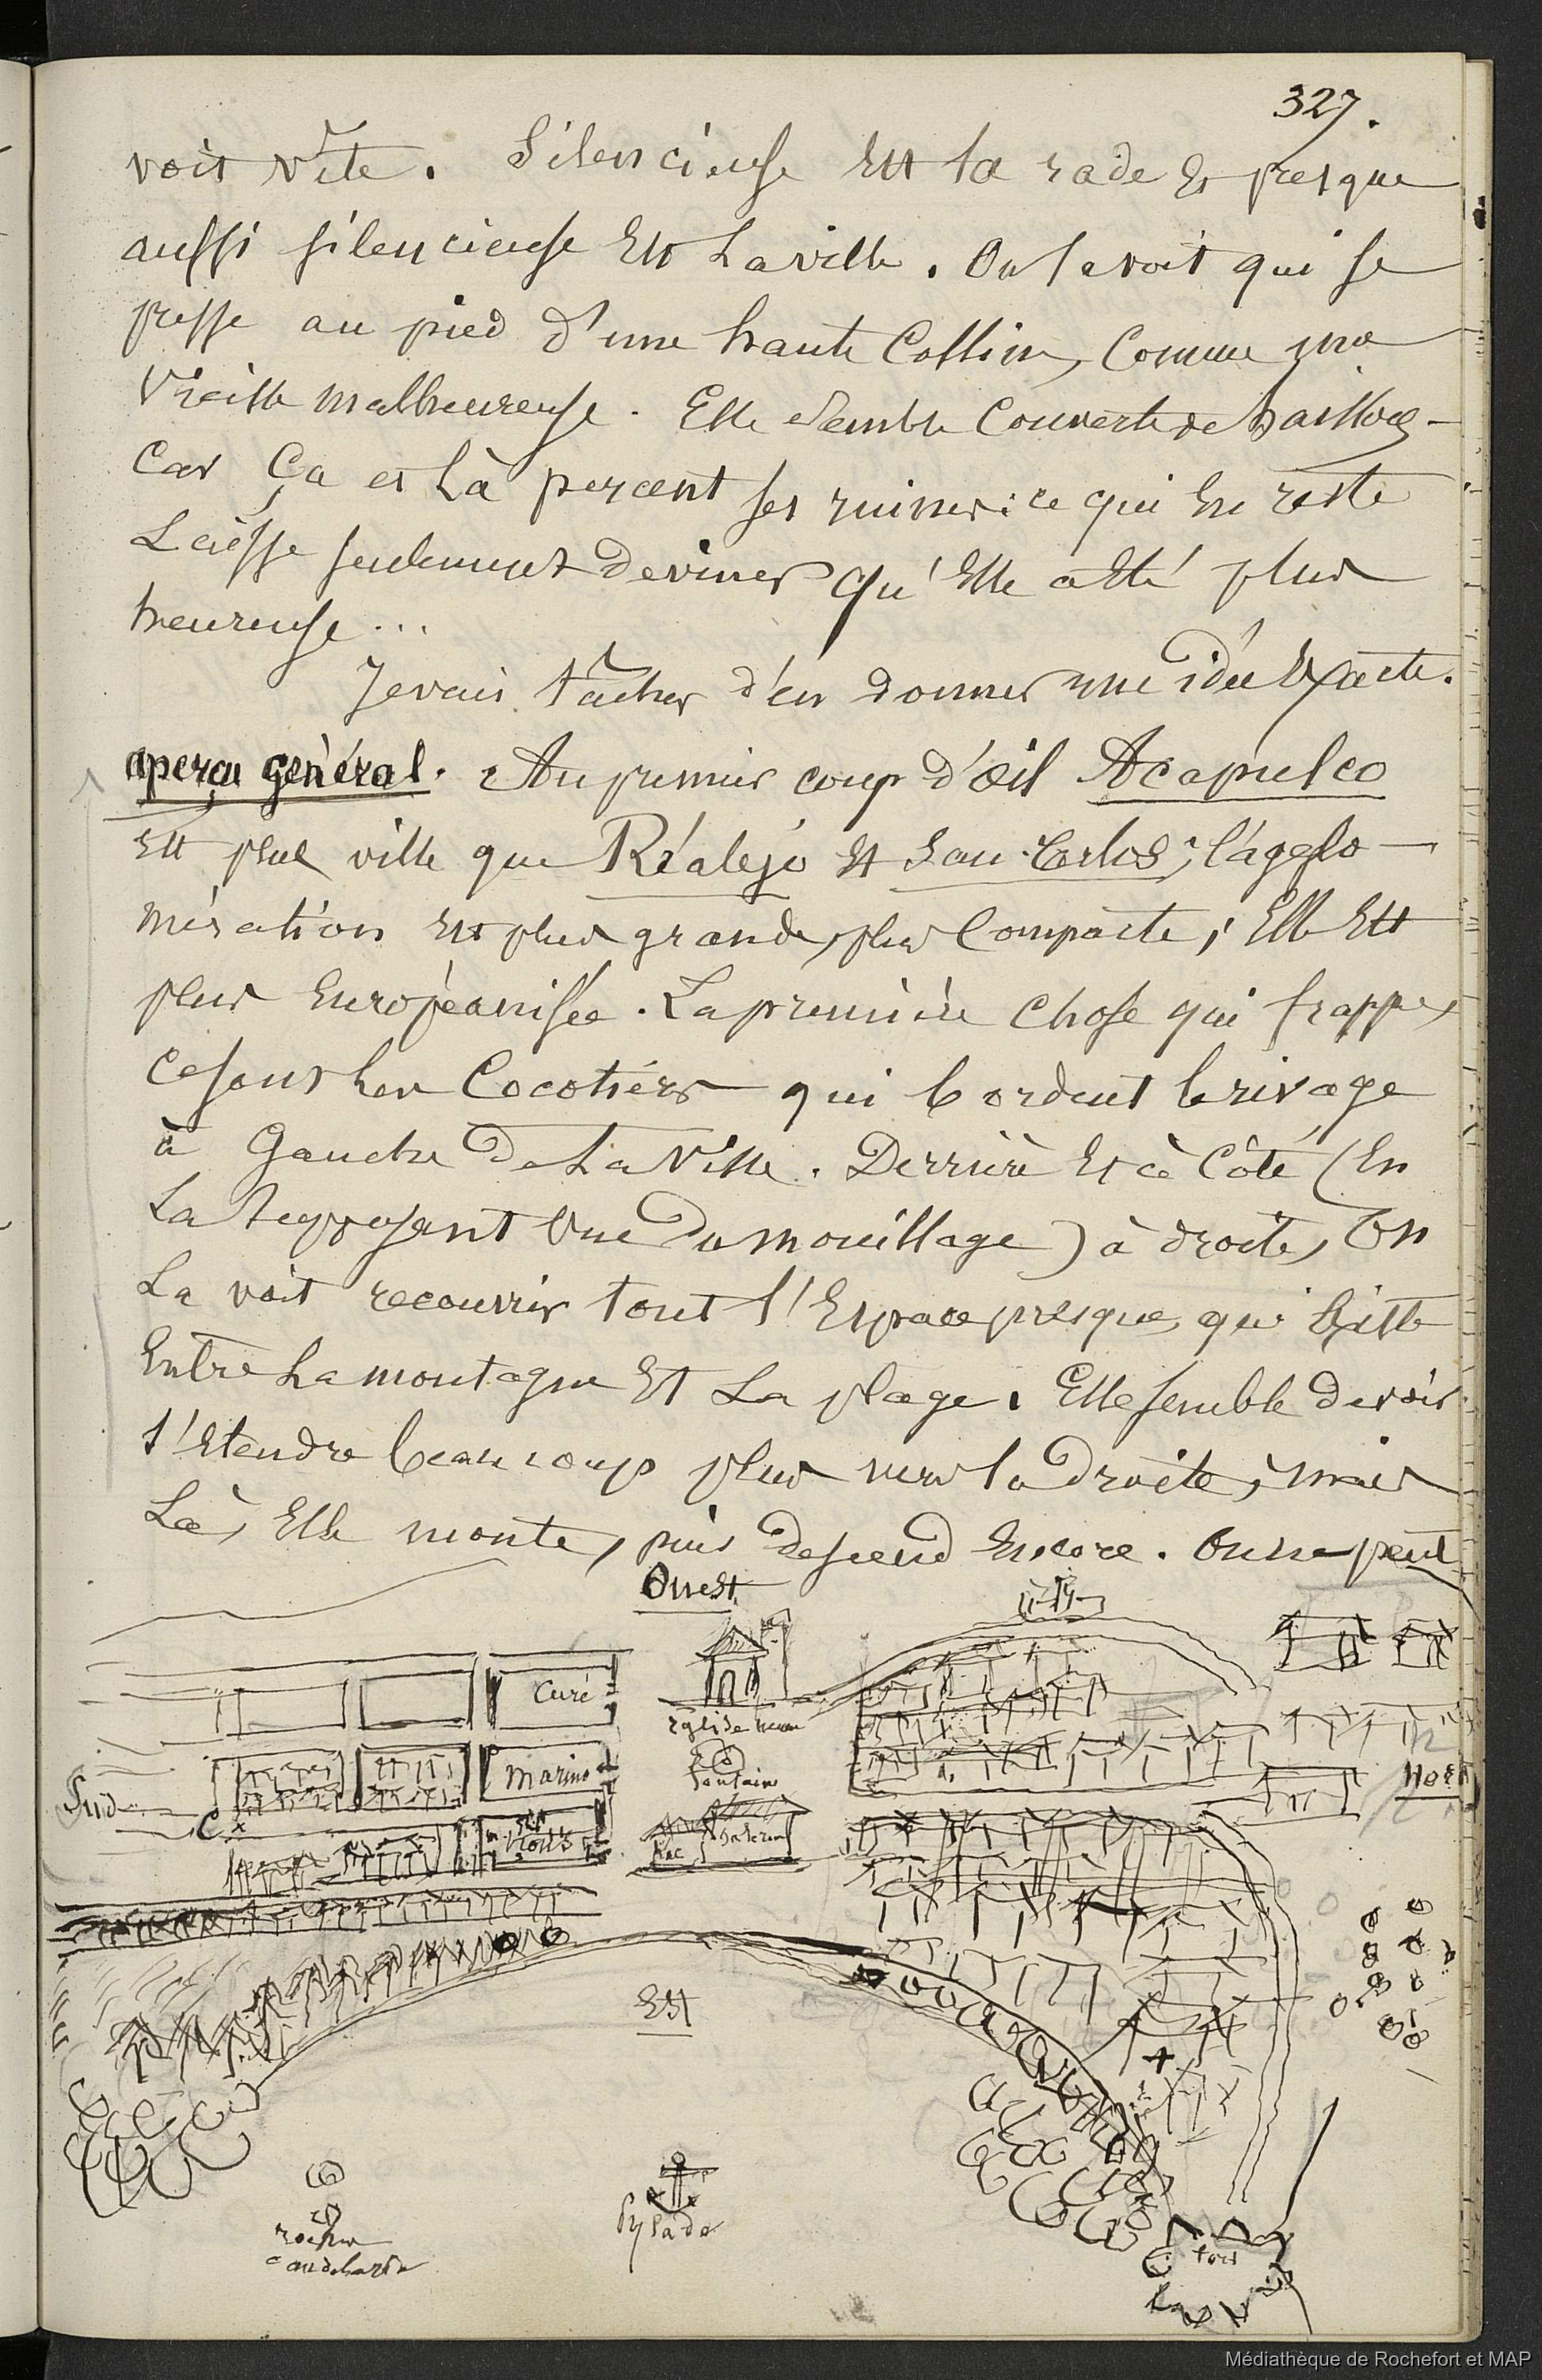 327.
voit vîte. Silencieuse est la rade et presque
aussi silencieuse est la ville. On la voit qui se
presse au pied d'une haute colline, comme une
vieille malheureuse. Elle semble couverte de haillons –
car ça et là percent ses ruines : ce qui en reste
laisse seulement deviner qu'elle a été plus
heureuse ...
Je vais tâcher d'en donner une idée exacte.
aperçu général. Au premier coup d'œil Acapulco
est plus ville que Réalejo et San Carlos, l'agglo-
mération est plus grande, plus compacte, elle est
plus Européanisée. La première chose qui frappe,
ce sont les cocotiers qui bordent le rivage
à gauche de la ville. Derrière et à côté (en
la supposant vue du mouillage) à droite, on
la voit recouvrir tout l'espace presque, qui existe
entre la montagne et la plage. Elle semble devoir
s'étendre beaucoup plus vers la droite, mais
là, elle monte, puis descend encore. On ne peut
Ouest
Curé
Eglise
Sud
marine
fontaine
Nord
Est
rocher
Pylade
fort
Médiathèque de Rochefort et MAP